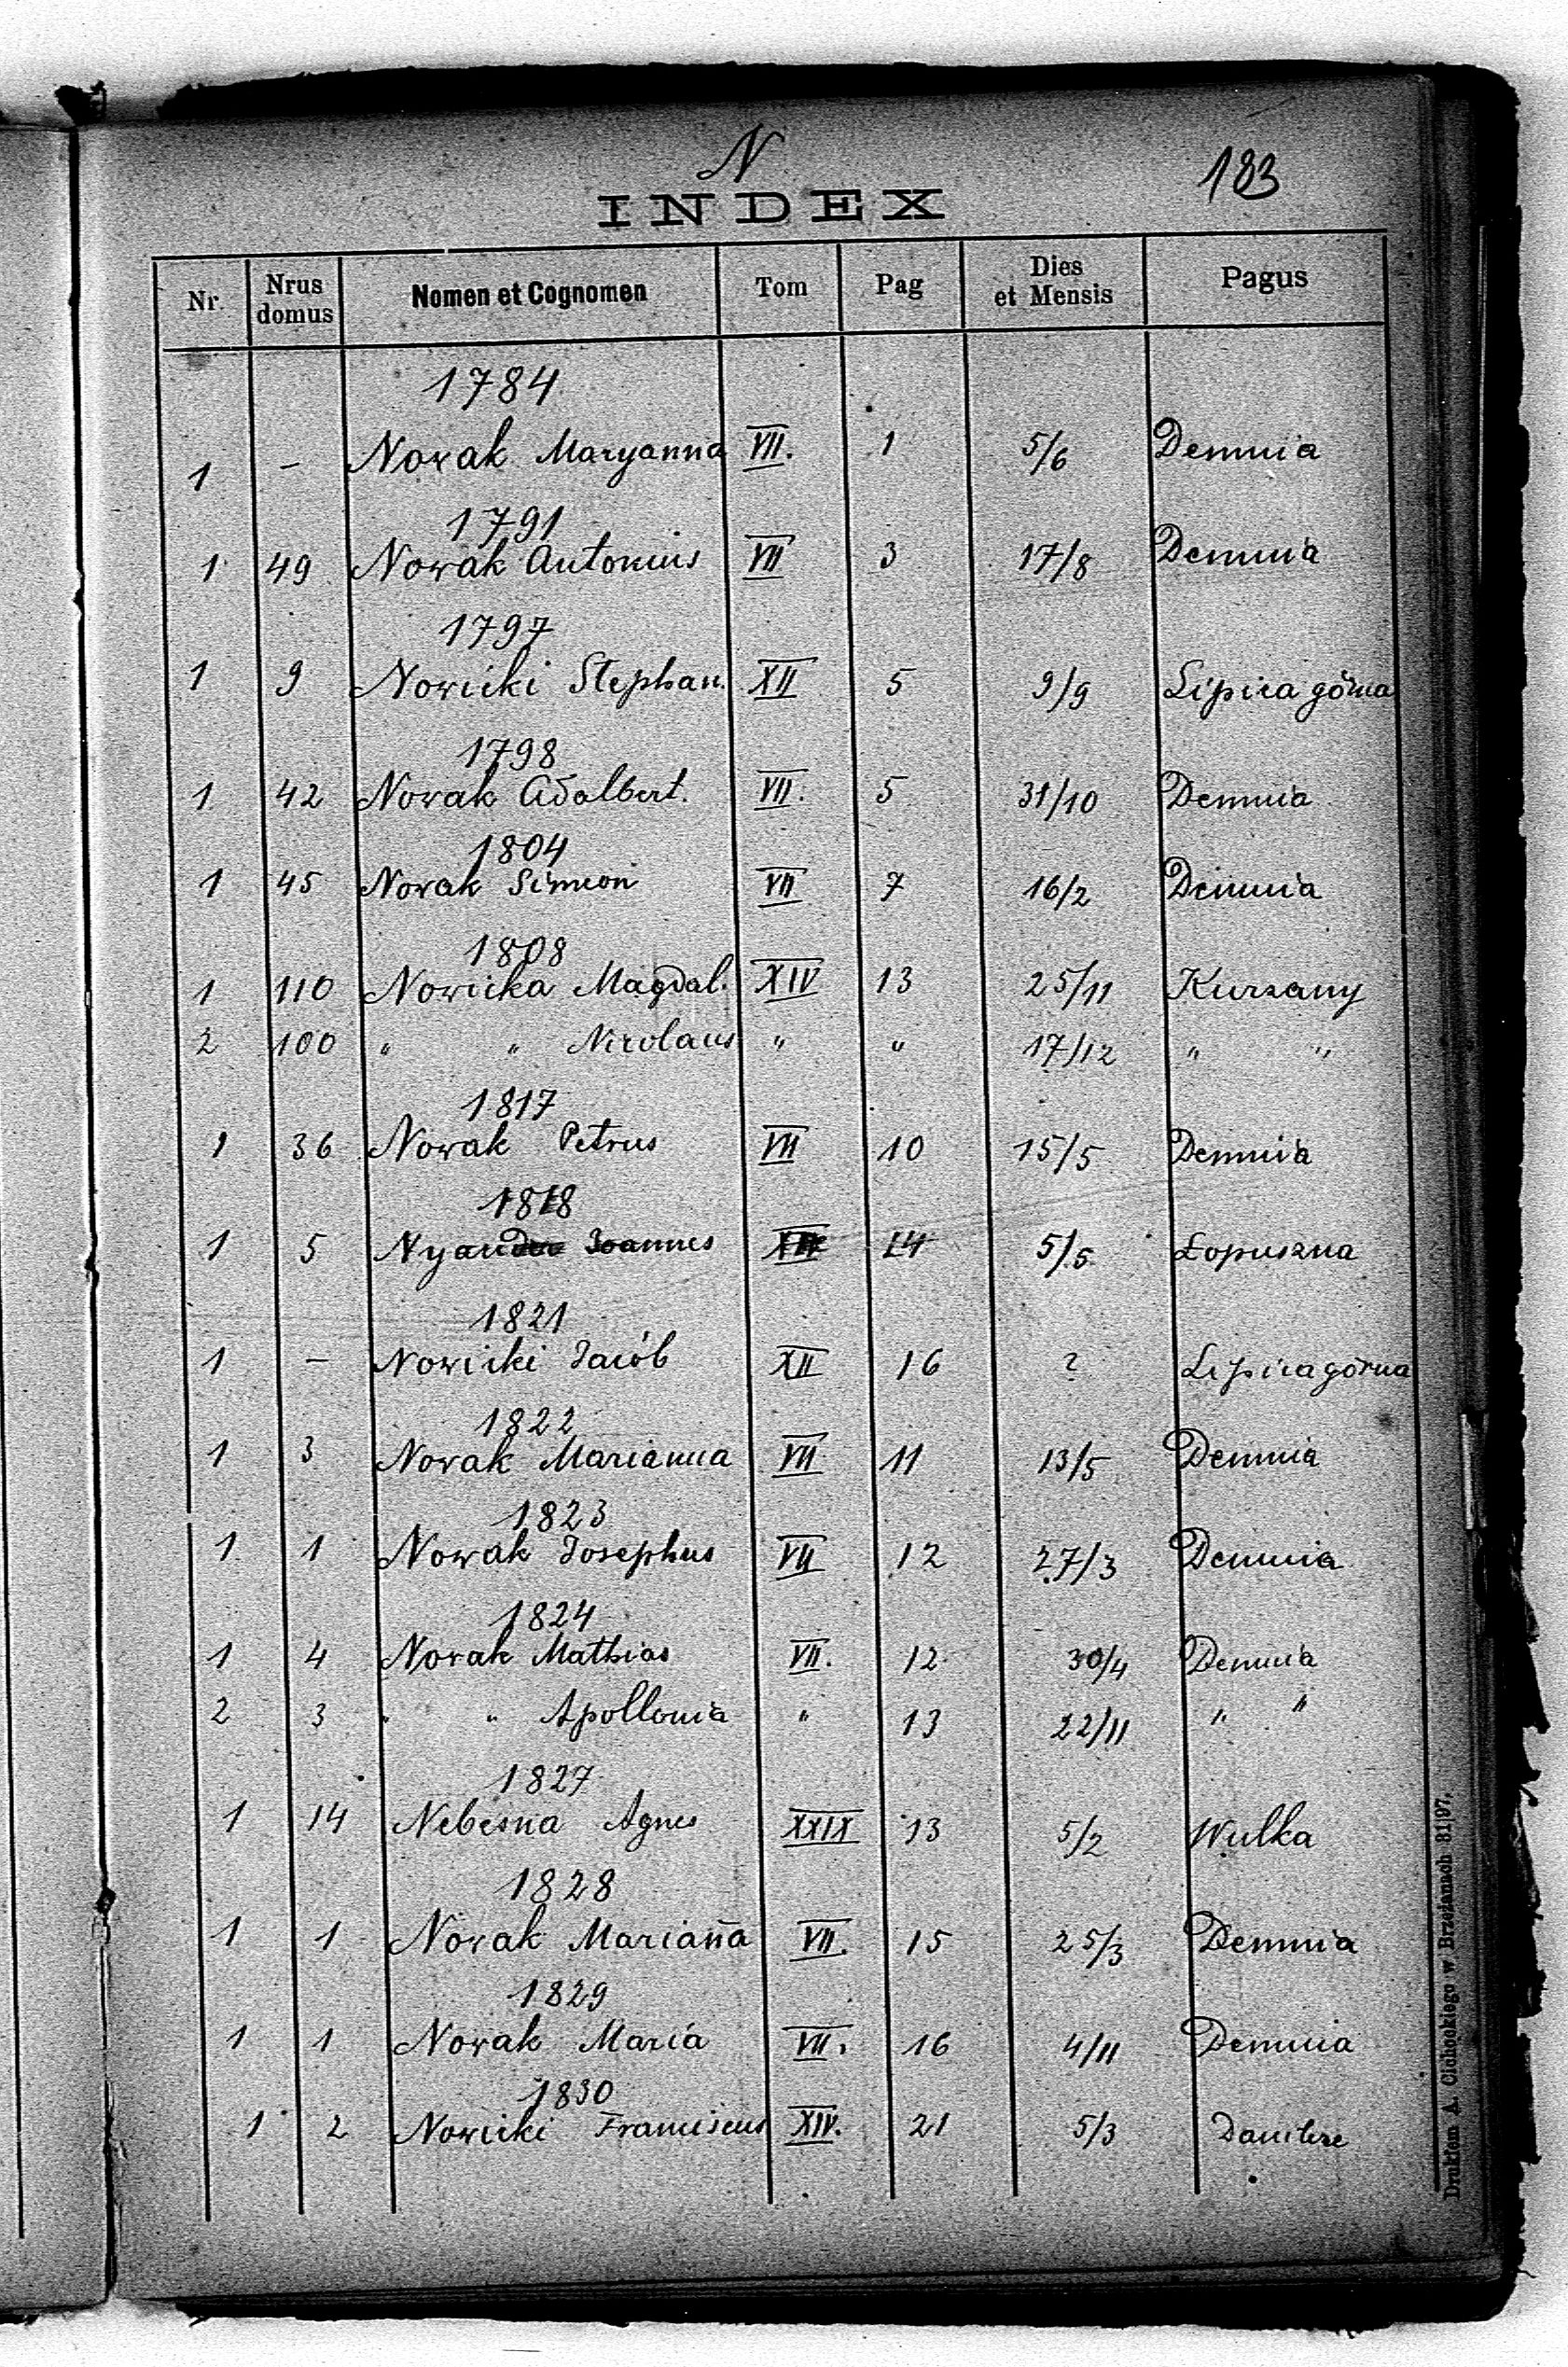 N
183
INDEX
Nr Nrus domus Nomen et Cognomen Tom Pag Dies et Mensis Pagus
1784
1 – Nowak Maryanna VII. 1 5/6 Demnia
1791
1 49 Nowak Antonius VII 3 17/8 Demnia
1797
1 9 Nowicki Stephan. XII 5 9/9 Lipica górna
1798
1 42 Nowak Adalbert. VII. 5 31/10 Demnia
1804
1 45 Nowak Simeon VII 7 16/2 Demnia
1808
1 110 Nowicka Magdal. XIV 13 25/11 Kurzany
2 100 " " Nicolaus " " 17/12 " "
1817
1 36 Nowak Petrus VII 10 15/5 Demnia
1818
1 5 Joannes 14 5/5 Łopuszna
1821
1 – Nowicki Jacób XII 16 ? Lipica górna
1822
1 3 Nowak Marianna VII 11 13/5 Demnia
1823
1 1 Nowak Josephus VII 12 27/3 Demnia
1824
1 4 Nowak Mathias VII. 12 30/4 Demnia
2 3 " " Apollonia " 13 22/11 " "
1827
1 14 Nebesna Agnes XXIX 13 5/2 Wulka
1828
1 1 Nowak Mariaña VII. 15 25/3 Demnia
1829
1 1 Nowak Maria VII. 16 4/11 Demnia
1830
1 2 Nowicki Franciscus XIV. 21 5/3
Drukiem A. Cichockiego w Brzeżanach 81|97.